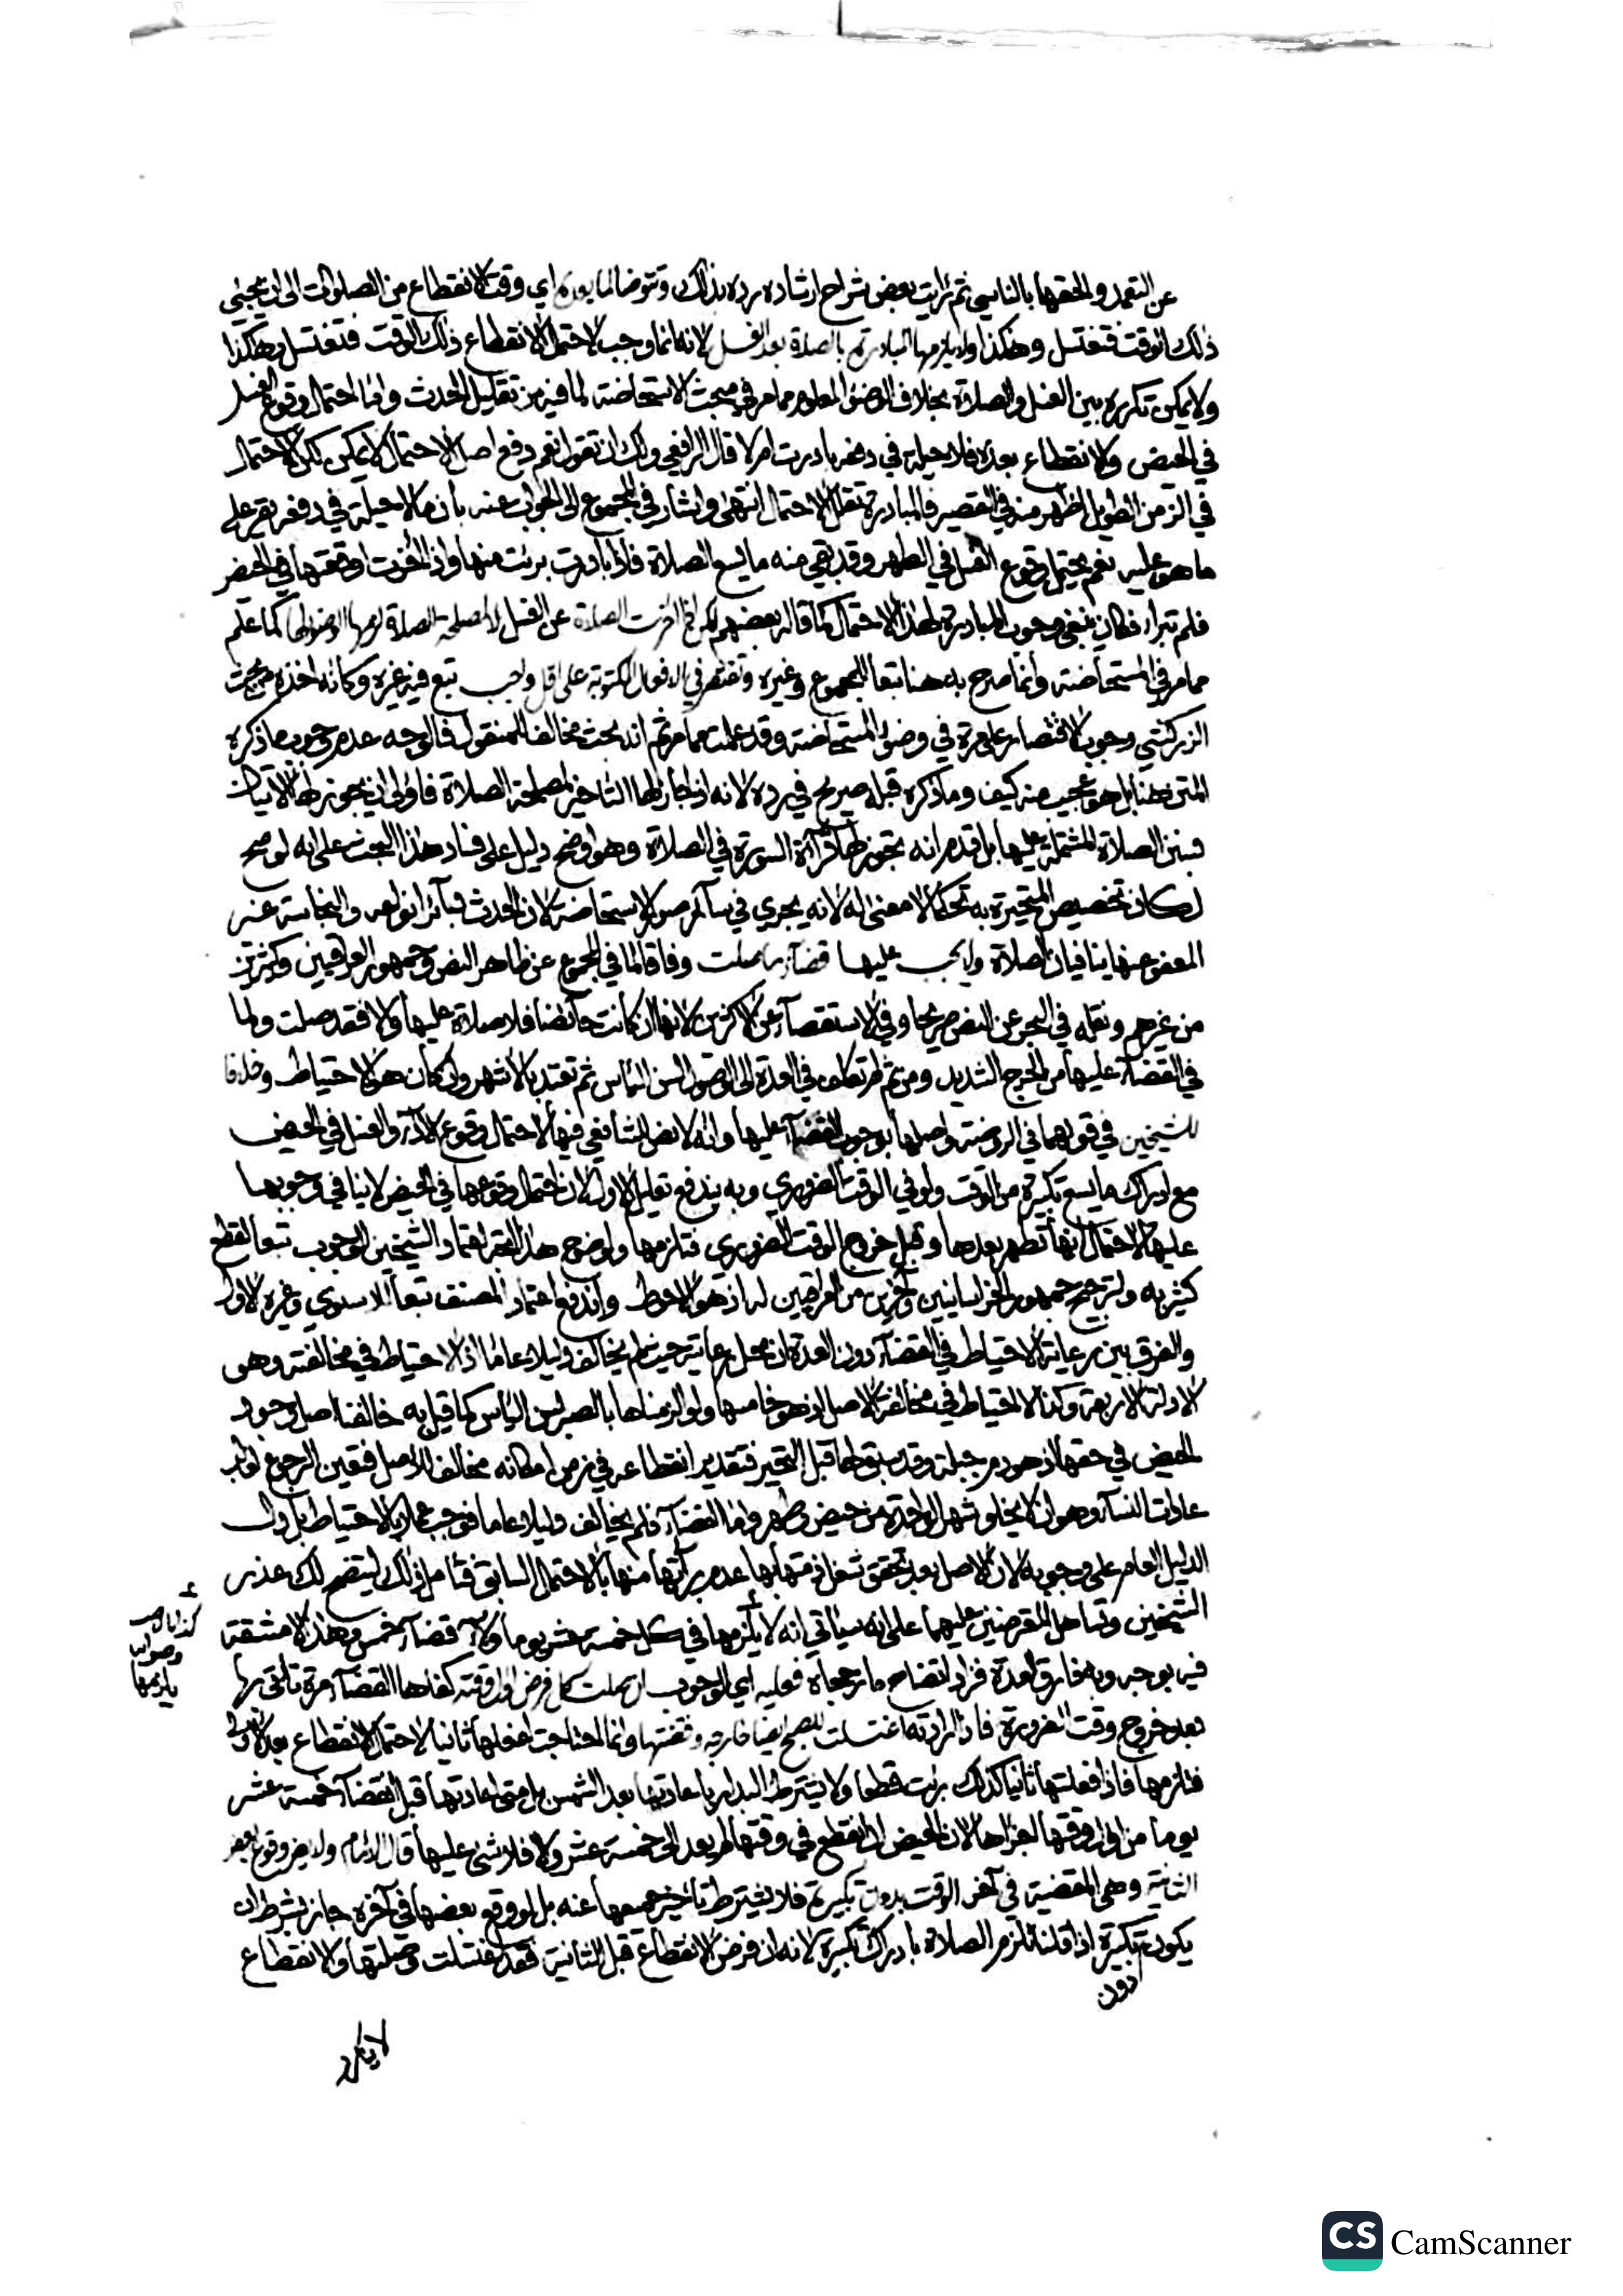 عن التعمد والحقها بالناسي ثم رأيت بعض شراح ارشاده رده بذلك وتتوضا لما بعده اي وقت الانقطاع من الصلوات الى ان يجيئ
ذلك الوقت فتغتسل وهكذا ولا يلزمها المبادرة بالصلاة بعد الغسل لانه انما وجب لاحتمال الانقطاع ذلك الوقت فتغتسل وهكذا
ولا يمكن تكرره بين الغسل والصلاة بخلاف الوضوء المعلوم مما مر في مبحث الاستحاضة لما فيه من تقليل الحدث واما احتمال وقوع الغسل
في الحيض والانقطاع بعده فلا حيلة في دفعه بادرت ام لا قال الرافعي ولك ان تقول نعم دفع اصل الاحتمال لا يمكن لكن الاحتمال
في الزمن الطويل اظهر منه في القصير فالمبادرة تقلل الاحتمال انتهى واشار في المجموع الى الجواب عنه بان ما لا حيلة في دفعه يقر على
ما هو عليه نعم يحتمل وقوع الغسل في الطهر وقد بقي منه ما يسع الصلاة فاذا بادرت برئت منها واذا اخرت اوقعتها في الحيض
فلم تبرا فكان ينبغي وجوب المبادرة لهذا الاحتمال كما قاله بعضهم لكن اذا اخرت الصلاة عن الغسل لا لمصلحة الصلاة لزمها الوضوء لها كما علم
مما مر في المستحاضة وانما صرح به هنا تبعا للمجموع وغيره وتقتصر في الافعال المكتوبة على اقل واجب تبع فيه غيره وكانه اخذه من بحث
الزركشي وجوب الاقتصار على مرة في وضوء المستحاضة وقد علمت مما مر ثم انه بحث مخالف للمنقول فالوجه عدم وجوب ما ذكره
المتن هنا بل هو عجيب منه كيف وما ذكره قبله صريح في رده لانه اذا جاز لها التاخير لمصلحة الصلاة فاولى ان يجوز لها الاتيان
بسنن الصلاة المشتملة عليها بل قدم انه يجوز لها قرآة السورة في الصلاة وهو اوضح دليل على فساد هذا البحث على انه لو صح
لكان تخصيص المتحيرة به تحكما لا معنى له لانه يجري في سآئر صور الاستحاضة لان الحدث بسآئر انواعه والنجاسة غير
المعفو عنها ينافيان الصلاة ولا يجب عليها قضآء ما صلت وفاقا لما في المجموع عن ظاهر النص وجمهور العراقيين وكثيرين
من غيرهم ونقله في البحر عن النص صريحا وفي الاستقصآء عن الاكثرين لانها ان كانت حآئضا فلا صلاة عليها والا فقد صلت ولما
في القضآء عليها من الحرج الشديد ومن ثم لم تكلف في العدة الى الوصول لسن الياس ثم تعتد بالاشهر وان كان هو الاحتياط وخلافا
للشيخين في قولهما في الروضة واصلها بوجوب القضآء عليها وانه لا نص للشافعي فيها لاحتمال وقوع الادآء والغسل في الحيض
مع ادراك ما يسع تكبيرة من الوقت ولو في الوقت الضروري وبه يندفع تعليل الاول لان احتمال وقوعها في الحيض لا ينافي وجوبها
عليها لاحتمال انها تطهر بعدها وقبل خروج الوقت الضروري فتلزمها ولوضوح هذا اتجه اعتماد الشيخين الوجوب تبعا لقطع
كثير به وترجيح جمهور الخراسانيين واخرين من العراقيين له اذ هو الاحوط واندفع اعتماد المصنف تبعا للاسنوي وغيره الاول
والفرق بين رعاية الاحتياط في القضآء دون العدة ان محل رعايته حيث لم يخالف دليلا عاما اذ الاحتياط في مخالفته وهو
الادلة الاربعة وكذا لا احتياط في مخالفة الاصل اذ هو خامسها ولو الزمناها بالصبر لسن الياس كما قيل به خالفنا اصل وجود
الحيض في حقها اذ هو دم جبلة وقد سبق لها قبل التحير فتقدير انقطاعه في زمن امكانه مخالف للاصل فتعين الرجوع لغالب
عادات النسآء وهو ان لا يخلو شهر الواحدة من حيض وطهر واما القضآء فلم يخالف دليلا عاما فوجب عملا بالاحتياط بل دل
الدليل العام على وجوبه لان الاصل بعد تحقق شغل ذمتها بها عدم برآتها منها بالاحتمال السابق فتامل ذلك ليتضح لك عذر
الشيخين وتساهل المعترضين عليهما على انه سياتي انه لا يلزمها في كل خمسة عشر يوما الا قضآء خمس وهذا لا مشقة
فيه بوجه وبه فارق العدة فزاد اتضاح ما رجحاه فعليه اي الوجوب ان صلت كل فرض اول وقته كفاها القضآء مرة تاتي بها
بعد خروج وقت الضرورة فاذا ارادته اغتسلت للصبح ايضا خارجه وقضتها وانما احتاجت لفعلها ثانيا لاحتمال الانقطاع بعد الاولى
فتلزمها فاذا فعلتها ثانيا كذلك برئت قطعا ولا يشترط البدار باعادتها بعد الشمس بل متى اعادتها قبل انقضآء خمسة عشر
يوما من اول وقتها اجزاها لان الحيض ان انقطع في وقتها لم يعد الى خمسة عشر والا فلا شيء عليها قال الامام ولا يضر وقوع بعض
الثانية وهي المقضية في آخر الوقت بدون تكبيرة فلا يشترط تاخير جميعها عنه بل لو وقع بعضها في آخره جاز بشرط ان
يكون دون تكبيرة اذا قلنا تلزم الصلاة بادراك تكبيرة لانه ان فرض الانقطاع قبل الثانية فقد اغتسلت وصلتها والانقطاع
كذا بالاصل
وصوابه
يلزمها
لا يتكرر
CS CamScanner